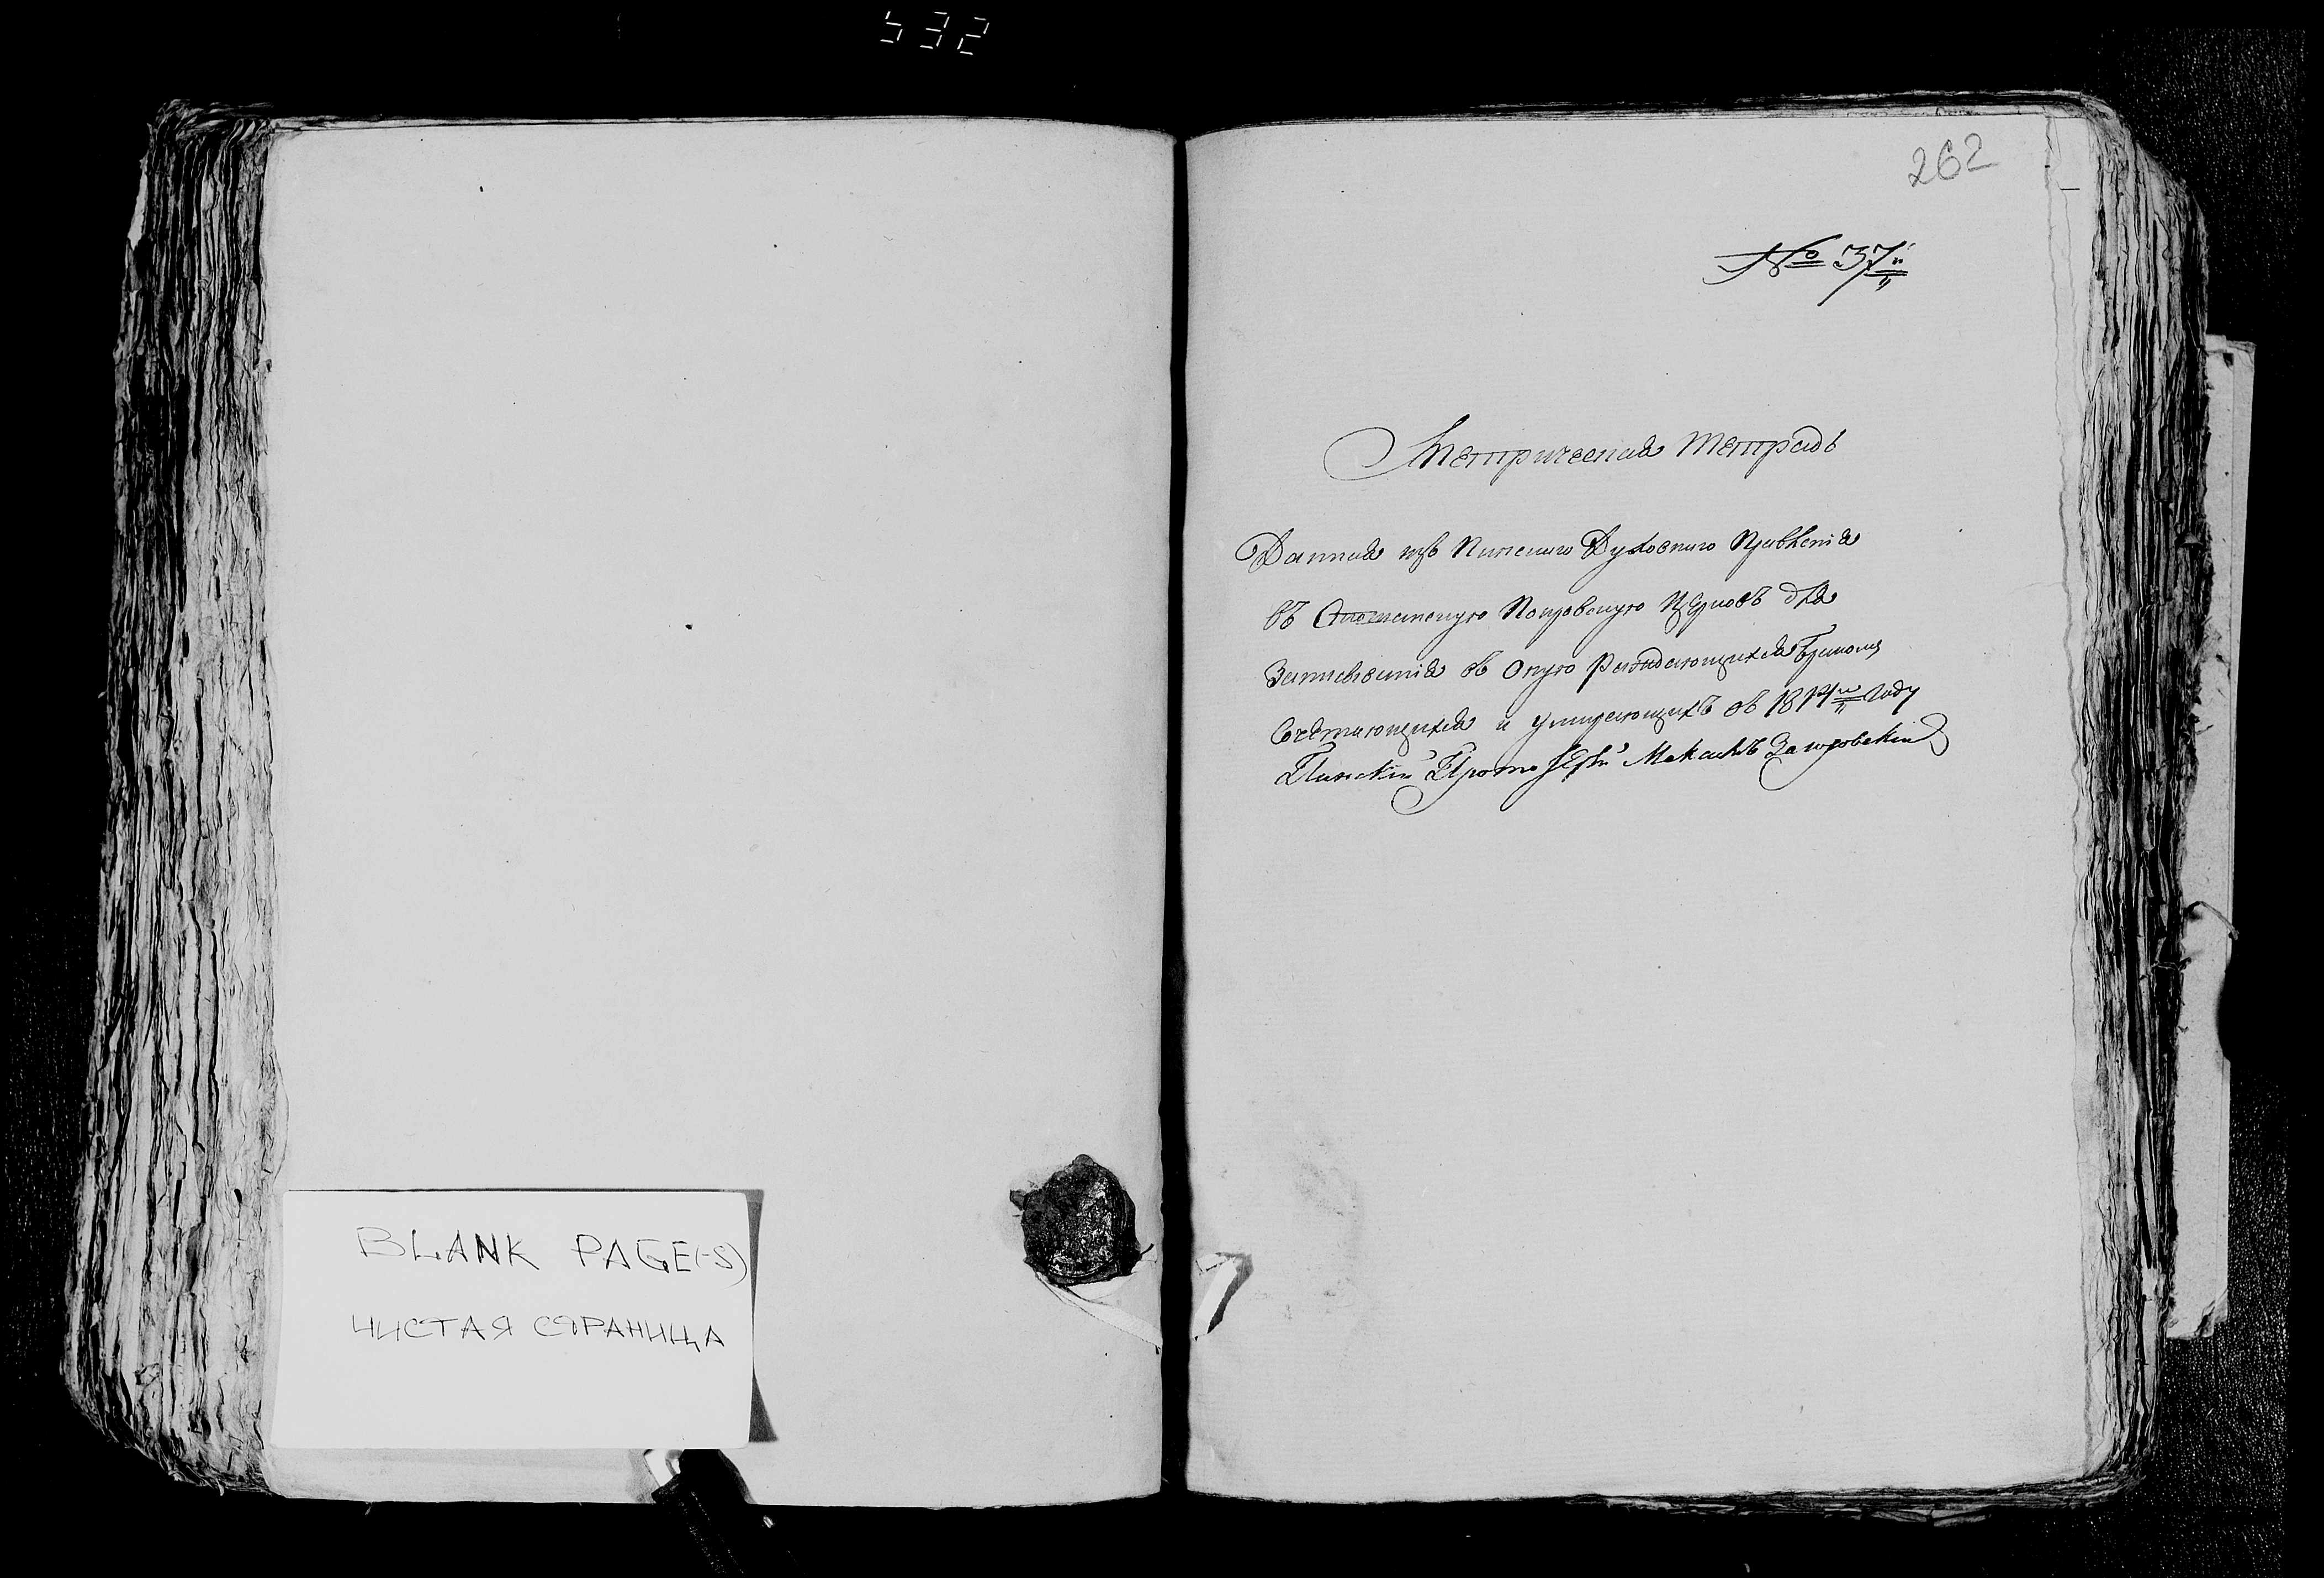 532
262
№ 37й
Метрическая тетрадь
Данная изъ Пинскаго Духовнаго Правленія
въ Покровскую Церковь для
Записыванія въ оную раждающихся бракомъ
Сочетающихся и умирающихъ въ 1814м году
Пинскій Протоіерей
BLANK PAGE(-S)
ЧИСТАЯ СТРАНИЦА